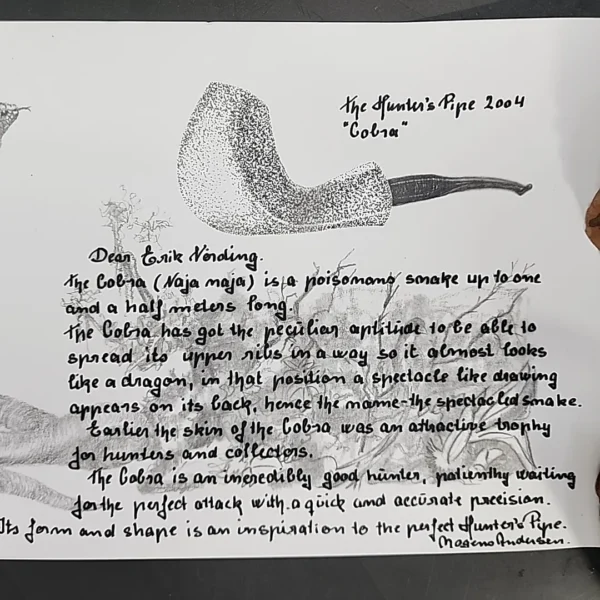 The Hunter's Pipe 2004
"Cobra"
Dear Erik Nørding.
The Cobra (Naja naja) is a poisomons snake up to one
and a half meters long.
The Cobra has got the peculiar aptitude to be able to
spread its upper ribs in a way so it almost looks
like a dragon, in that position a spectacle like drawing
appears on its back, hence the name-the spectacled snake.
Earlier the skin of the Cobra was an attractive trophy
for hunters and collectors.
The Cobra is an incredibly good hunter, patienthy waiting
for the perfect attack with a quick and accurate precision.
Its form and shape is an inspiration to the perfect Hunter's Pipe.
Andersen.